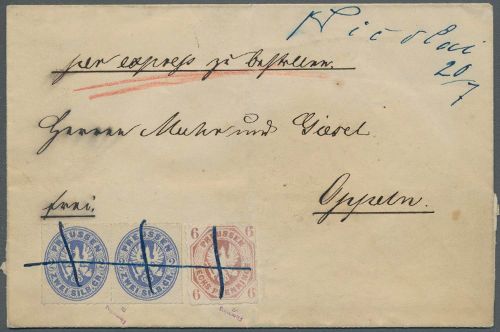 Nicolai
20/7
per express zu bestellen.
Herren Muhr und Giesel
Oppeln.
frei.
PREUSSEN
ZWEI SILB. GR.
PREUSSEN
ZWEI SILB. GR.
6 PREUSSEN 6
6 SECHS PFENNINGE 6